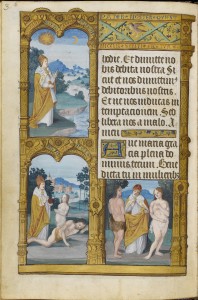 hodie. Et dimitte no
bis debita nostra Si
cut et nos dimittim9
debitoribus nostris.
Et ne nos inducas in
temptationem. Sed
libera nos a malo. A
Aue maria gra
cia plena do
minus tecum. Bene
dicta tu in mulierib9